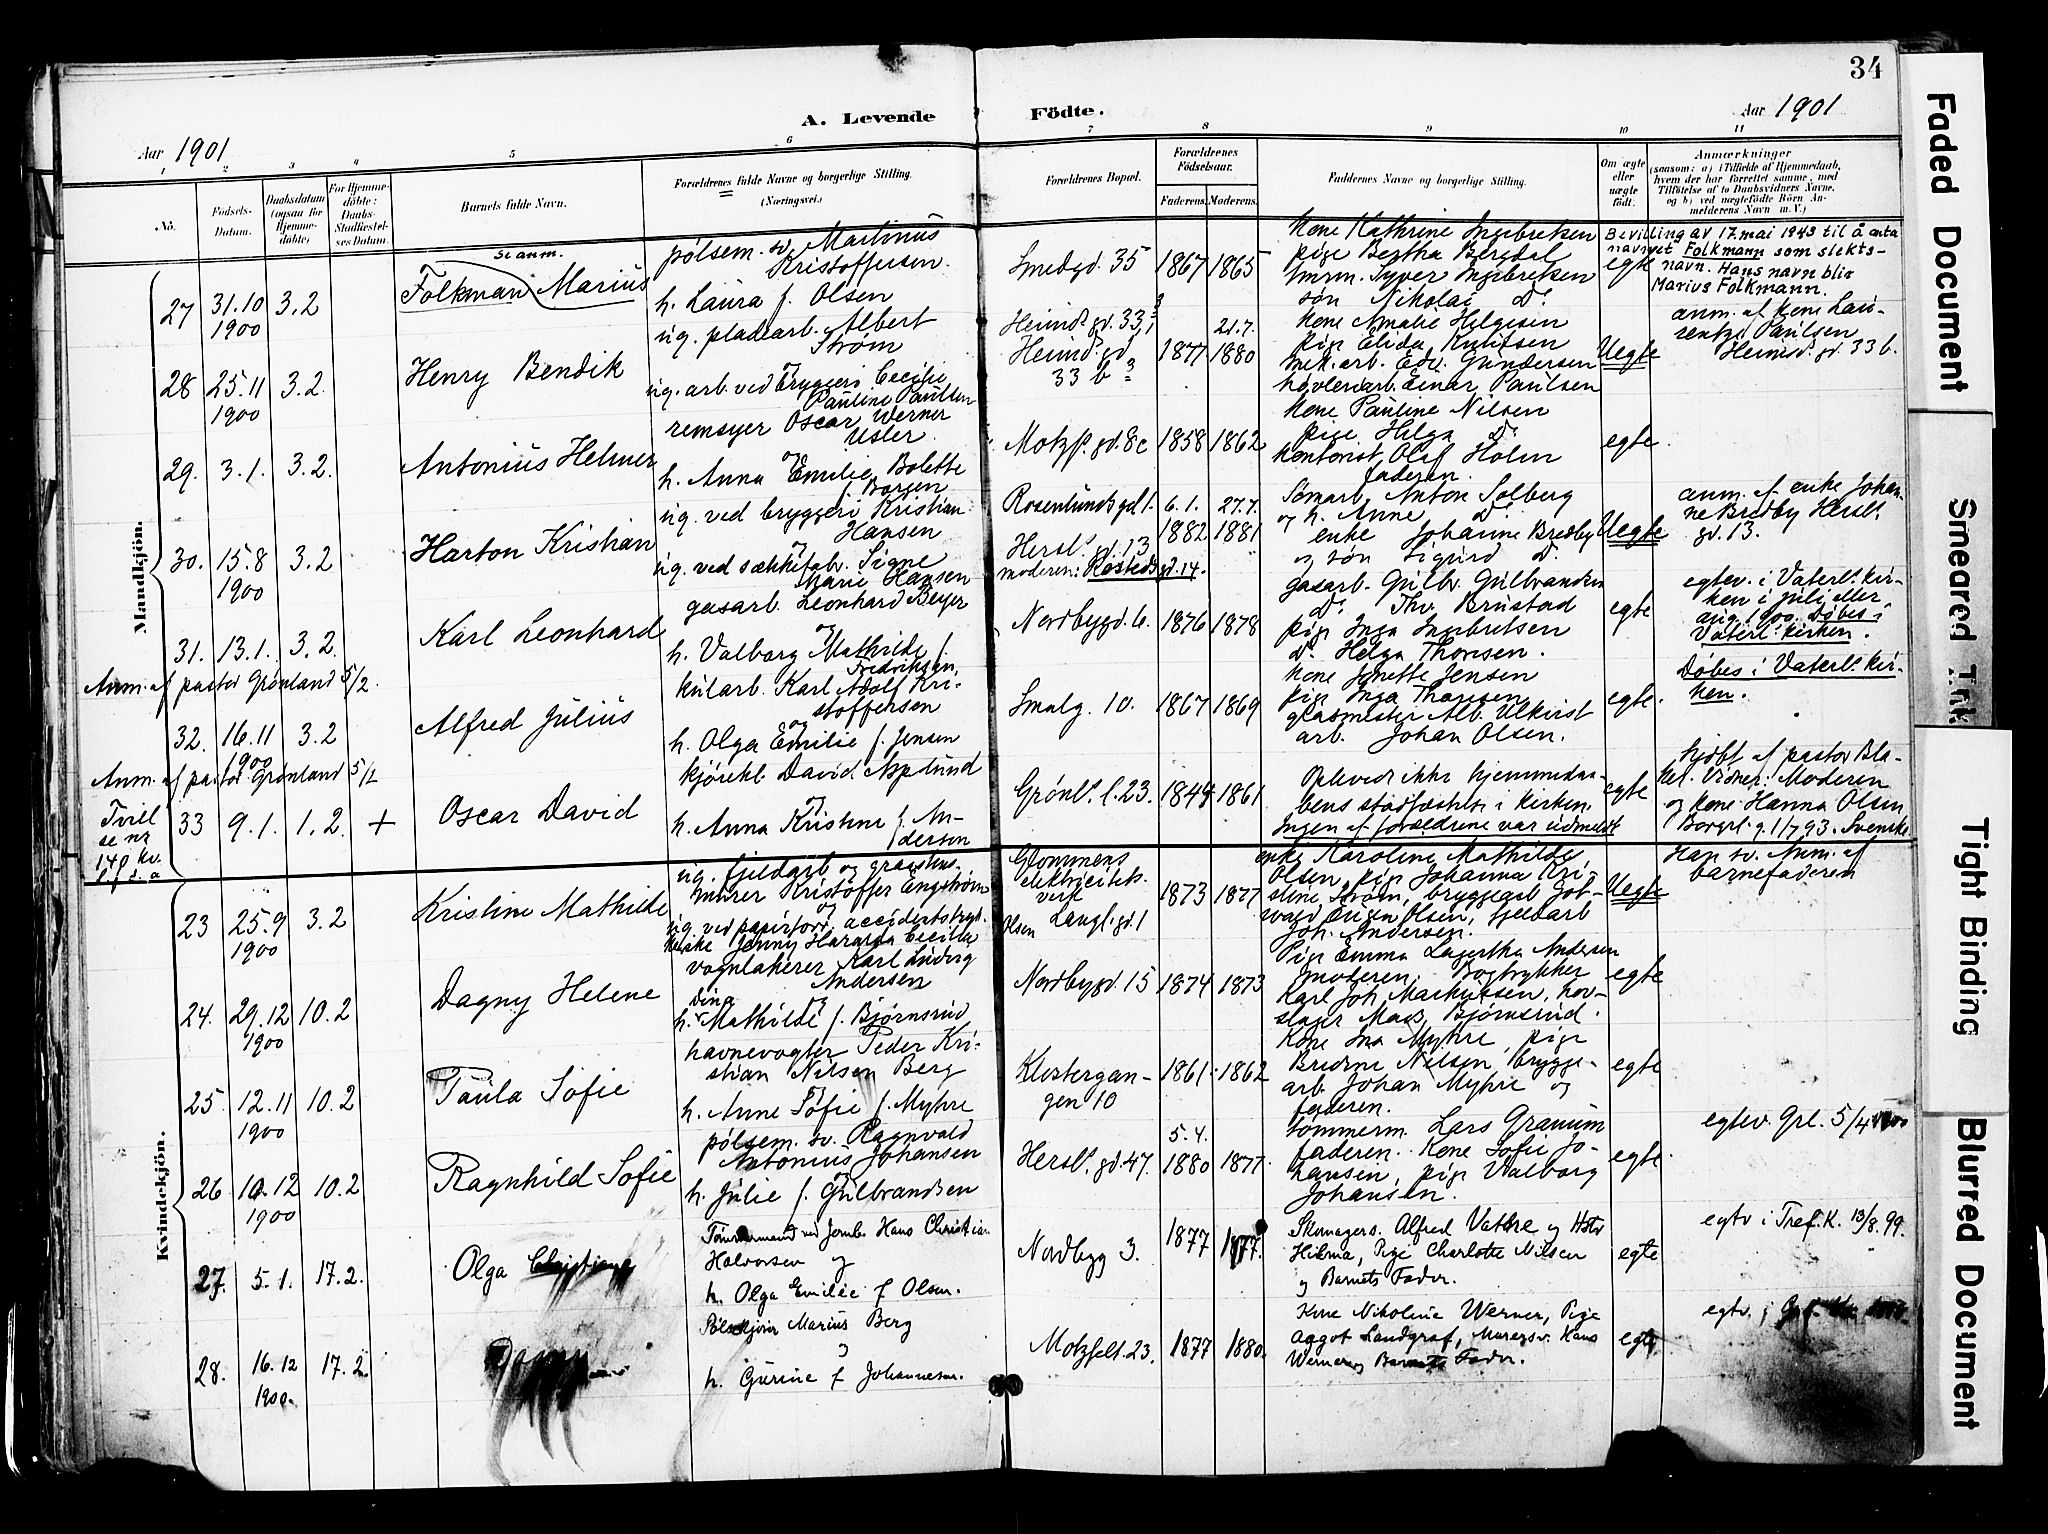 34
A. Levende Födte.
Aar 1901
Aar 1901
1 2 3 4 5 6 7 8 9 10 11
No.
Födsels-Datum.
Daabsdatum (ogsaa for Hjemme-döbte)
For Hjemme-döbte: Daabs-Stadfæstel-ses Datum.
Barnets fulde Navn.
Forældrenes fulde Navne og borgerlige Stilling.
(Næringsvei.)
Forældrenes Bopæl.
Forældrenes Födselsaar.
Faderens. Moderens.
Faddernes Navne og borgerlige Stilling.
Om ægte eller uægte født.
Anmærkninger
(saasom: a) i Tilfælde af Hjemmedaab,
hvem der har forrettet samme, med
Tilföielse af to Daabsvidners Navne,
og b) ved uægtefödte Börn An-
melderens Navn m. V.)
Mandkjön.
se anm.
27 31.10 1900 3.2
Folkman Marius
pølsem. sv. Martinus
Kristoffersen
h. Laura f. Olsen
Smedgd. 35 1867 1865
Kone Kathrine Ingebretsen
pige Bertha Bergdal
Syver Ingebretsen
søn Nikolai Do
egte
Bevilling av 17. mai 1943 til å anta
navnet Folkmann som slekts-
navn. Hans navn blir
Marius Folkmann.
28 25.11 1900 3.2
Henry Bendik
ug. pladearb. Albert
Strøm
og
ug. arb. ved bryggeri Cecilie
Pauline Paulsen
Heimd. gd. 33,
Heimd. gd
33 b
21.7.
1877 1880
Kone Amalie Helgesen
pige Elida Knutsen
mek. arb. Edv. Gundersen
høvleriarb. Einar Paulsen
Uegte
anm. af kone Lau-
Paulsen
Heimd. gd. 33 b.
29. 3.1. 3.2.
Antonius Helmer
remsyer Oscar Werner
Usler
og
h. Anna Emilie Bolette
f. Borgen
Motzf. gd. 8c 1858 1862
Kone Pauline Nilsen
pige Helga Do
Kontorist Olaf Holm
faderen.
egte
30. 15.8 1900 3.2
Harton Kristian
ug. ved bryggeri Kristian
Hansen
og
ug. ved sækkefabr. Signe
Marie Hansen
Rosenlunds gd 1.
Hersl. gd. 13
moderen: Rosteds gd. 14.
6.1. 1882 27.7. 1881
Sømarb. Anton Solberg
og h. Anne Do
enke Johanne Bredby
og søn Sigurd D.
Uegte
anm. af enke Johan-
ne Bredby Hersl.
gd. 13.
31. 13.1. 3.2.
Karl Leonhard
gasarb. Leonhard Beyer
og
h. Valborg Mathilde f.
Fredriksen
Nordbygd. 6. 1876 1878
gasarb. Gulbr. Gulbrandsen
Do Thv. Brustad
pige Inga Ingebretsen
D. Helga Thoresen.
egte
egtev. i Vaterl. kir-
ken i juli eller
aug 1900. Døbes i
Vaterl. kirken.
Anm. af pastor Grønland 5/2.
32. 16.11 1900 3.2
Alfred Julius
kularb. Karl Adolf Kri-
stoffersen
og
h. Olga Emilie f. Jensen
Smalg. 10. 1867 1869
Kone Jenette Jensen
pige Inga Thoresen
glasmester Alb. Ulkvist
arb. Johan Olsen.
egte.
Døbes i Vaterl. kir-
ken.
Anm. af pastor Grønland 5/2
Tvill
se nr
140 kv.
33 9.1. 1.2. +
Oscar David
kjørekl. David Asplund
og
h. Anna Kristine f. An-
derson
Grønl. l. 23. 1849 1861
Oplevede ikke hjemmedaa-
bens stadfæstelse i kirken.
Ingen af forældrene var udmeldt
egte
hjdbt af pastor Bla-
kel. Vidner: Moderen
og kone Hanna Olsen
Borgerl. g. 1/7 93. Svenske
Kvindekjön.
23 25.9 1900 3.2
Kristine Mathilde
ug. fjeldarb og graastens-
murer Kristoffer Engstrøm
og
ug. ved papirforr. accidentstryk.
Jenny Haralda Cecilie
Olsen
Glommens
elektricitets.
verk
Langl. gd. 1
1873 1877
enke Karoline Mathilde
Olsen, pige Johanna Kri-
stine Strøm, bryggearb Got-
vald Eugen Olsen, fjeldarb
Joh. Andersen.
Uegte
Han sv. Anm. af
barnefaderen
24. 29.12 1900 10.2
Dagny Helene
vognlakerer Karl Ludvig
Andersen
Dina og
h. Mathilde f. Bjørnsrud
Nordbygd. 15 1874 1873
Pige Emma Lagertha Andersen
moderen. Bogtrykker
Karl Joh. Markussen, hov-
slager Mads Bjørnsrud.
egte
25 12.11 1900 10.2
Paula Sofie
havnevogter Peder Kri-
stian Nilsen Berg
og
h. Anne Sofie f. Myhre
Klostergan-
gen 10
1861 1862
Kone Ina Myhre, pige
Bredine Nilsen, brygge-
arb. Johan Myhre og
faderen.
egte
26 10.12 1900 10.2
Ragnhild Sofie
pølsem. sv. Ragnvald
Antonius Johansen
og
h. Julie f. Gulbrandsen
Hersl. gd. 47.
5.4. 1880 1877.
tømmerm. Lars Granum
faderen. Kone Sofie Jo-
hansen, pige Valborg
Johansen.
egte.
egtev. Grl. 5/4 1900
27. 5.1. 17.2.
Olga Christiane
Tømmermand ved Jernb. Hans Christian
Halvorsen og
h. Olga Emilie f Olsen.
Nordbyg 3. 1877 1877.
Skomagers. Alfred Vathe og Hstr
Hilma, Pige Charlotte Nilsen
og Barnets Fader.
egte
egtv i Tref. K. 13/8. 99.
28. 16.12 1900. 17.2.
Dagny
Marius Berg
og
h. Gurine f Johannesen.
Motzfelt. 23. 1877 1880.
Kone Nikoline Werner, Pige
Aagot Landgraf, Murersv. Hans
Werner og Barnets Fader.
egte
egtv. i
Faded Document
Smeared Ink
Tight Binding
Blurred Document